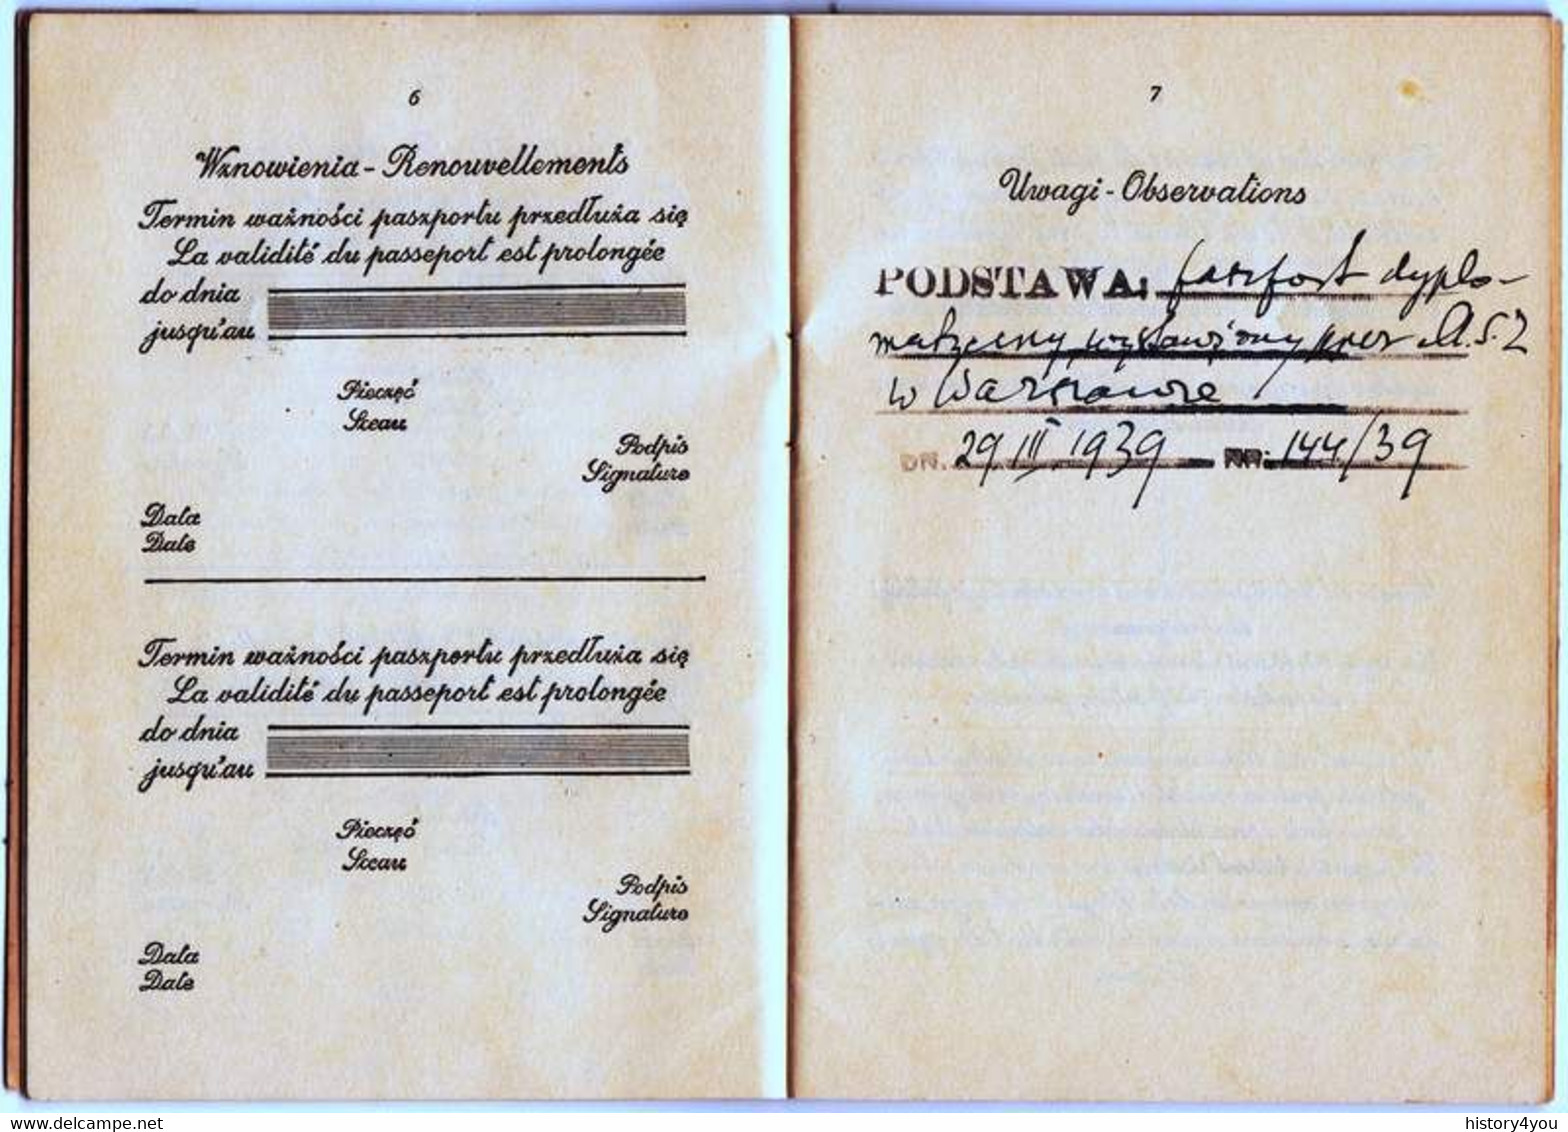 6
Wznowienia - Renouvellements
Termin ważności paszportu przedłuża się
La validité du passeport est prolongée
do dnia
jusqu'au
Pieczęć
Sceau
Podpis
Signature
Data
Date
Termin ważności paszportu przedłuża się
La validité du passeport est prolongée
do dnia
jusqu'au
Pieczęć
Sceau
Podpis
Signature
Data
Date
7
Uwagi - Observations
PODSTAWA: paszport dyplo-
matyczny wystawiony przez M.S.Z
w Warszawie
DN. 29.III.1939 NR: 144/39
www.delcampe.net
history4you